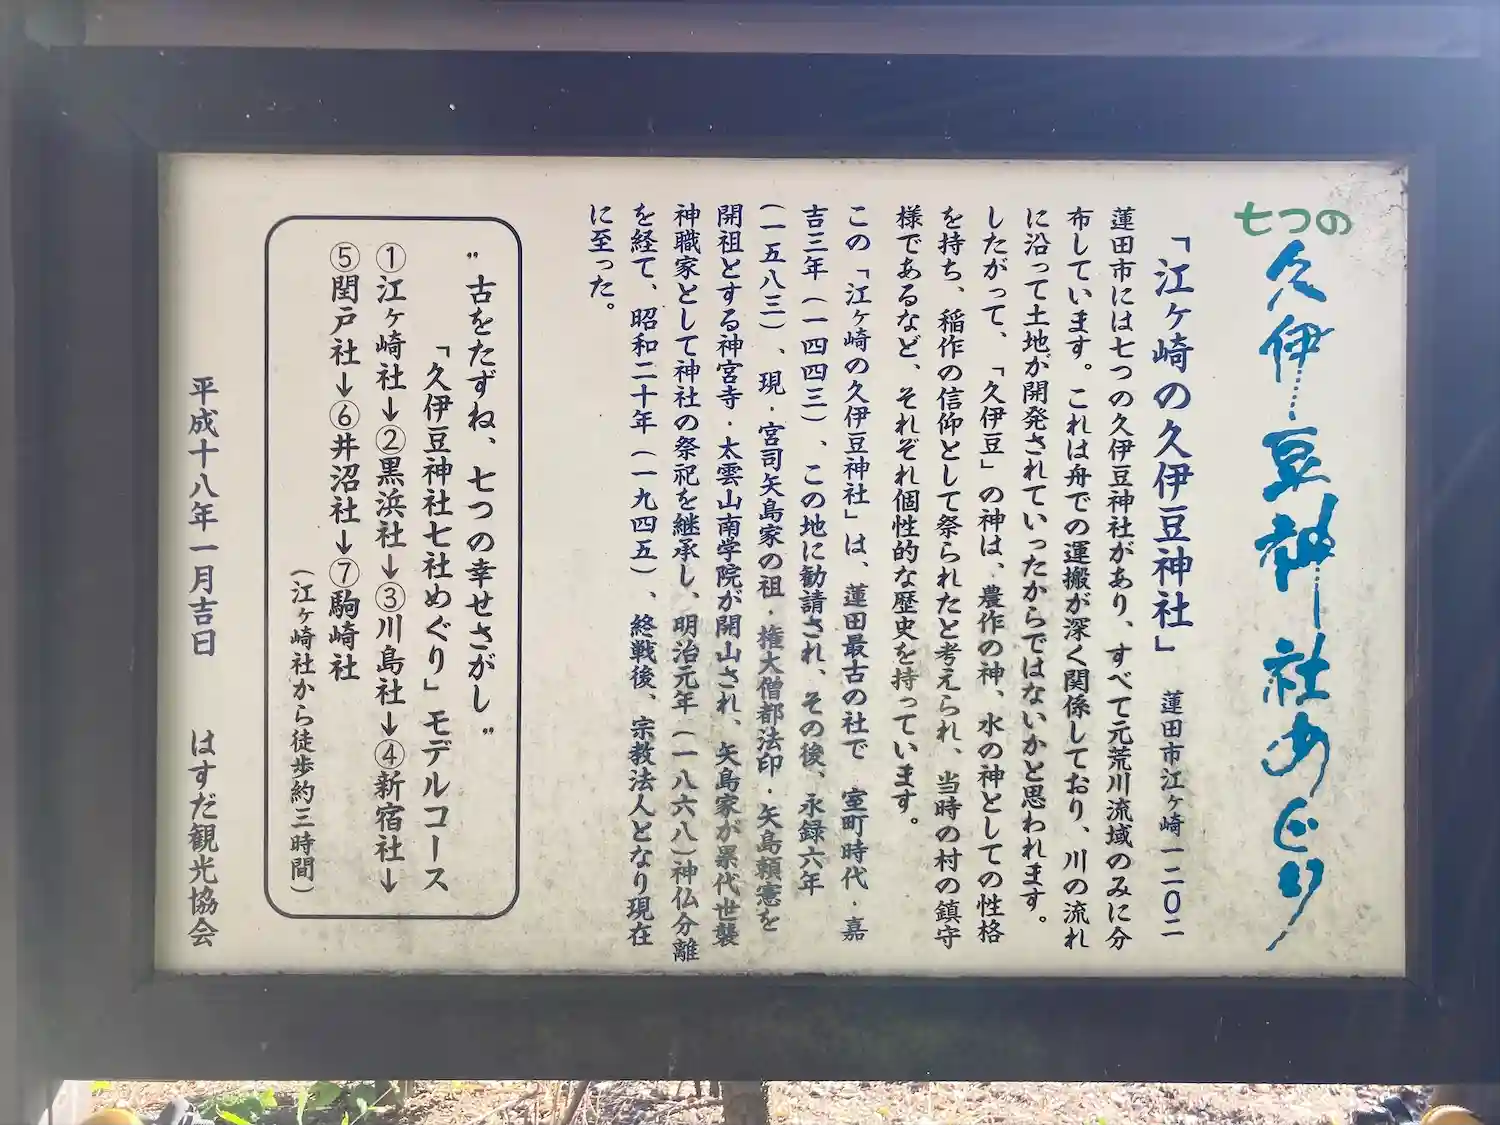 七つの
久伊豆神社めぐり
「江ヶ崎の久伊豆神社」 蓮田市江ヶ崎一二〇二
蓮田市には七つの久伊豆神社があり、すべて元荒川流域のみに分
布しています。これは舟での運搬が深く関係しており、川の流れ
に沿って土地が開発されていったからではないかと思われます。
したがって、「久伊豆」の神は、農作の神、水の神としての性格
を持ち、稲作の信仰として祭られたと考えられ、当時の村の鎮守
様であるなど、それぞれ個性的な歴史を持っています。
この「江ヶ崎の久伊豆神社」は、蓮田最古の社で 室町時代・嘉
吉三年(一四四三)、この地に勧請され、その後、永録六年
(一五八三)、現・宮司矢島家の祖・権大僧都法印・矢島頼憲を
開祖とする神宮寺・太雲山南学院が開山され、矢島家が累代世襲
神職家として神社の祭祀を継承し、明治元年(一八六八)神仏分離
を経て、昭和二十年(一九四五)、終戦後、宗教法人となり現在
に至った。
〝古をたずね、七つの幸せさがし〟
「久伊豆神社七社めぐり」モデルコース
①江ヶ崎社→②黒浜社→③川島社→④新宿社→
⑤閏戸社→⑥井沼社→⑦駒崎社
(江ヶ崎社から徒歩約三時間)
平成十八年一月吉日 はすだ観光協会